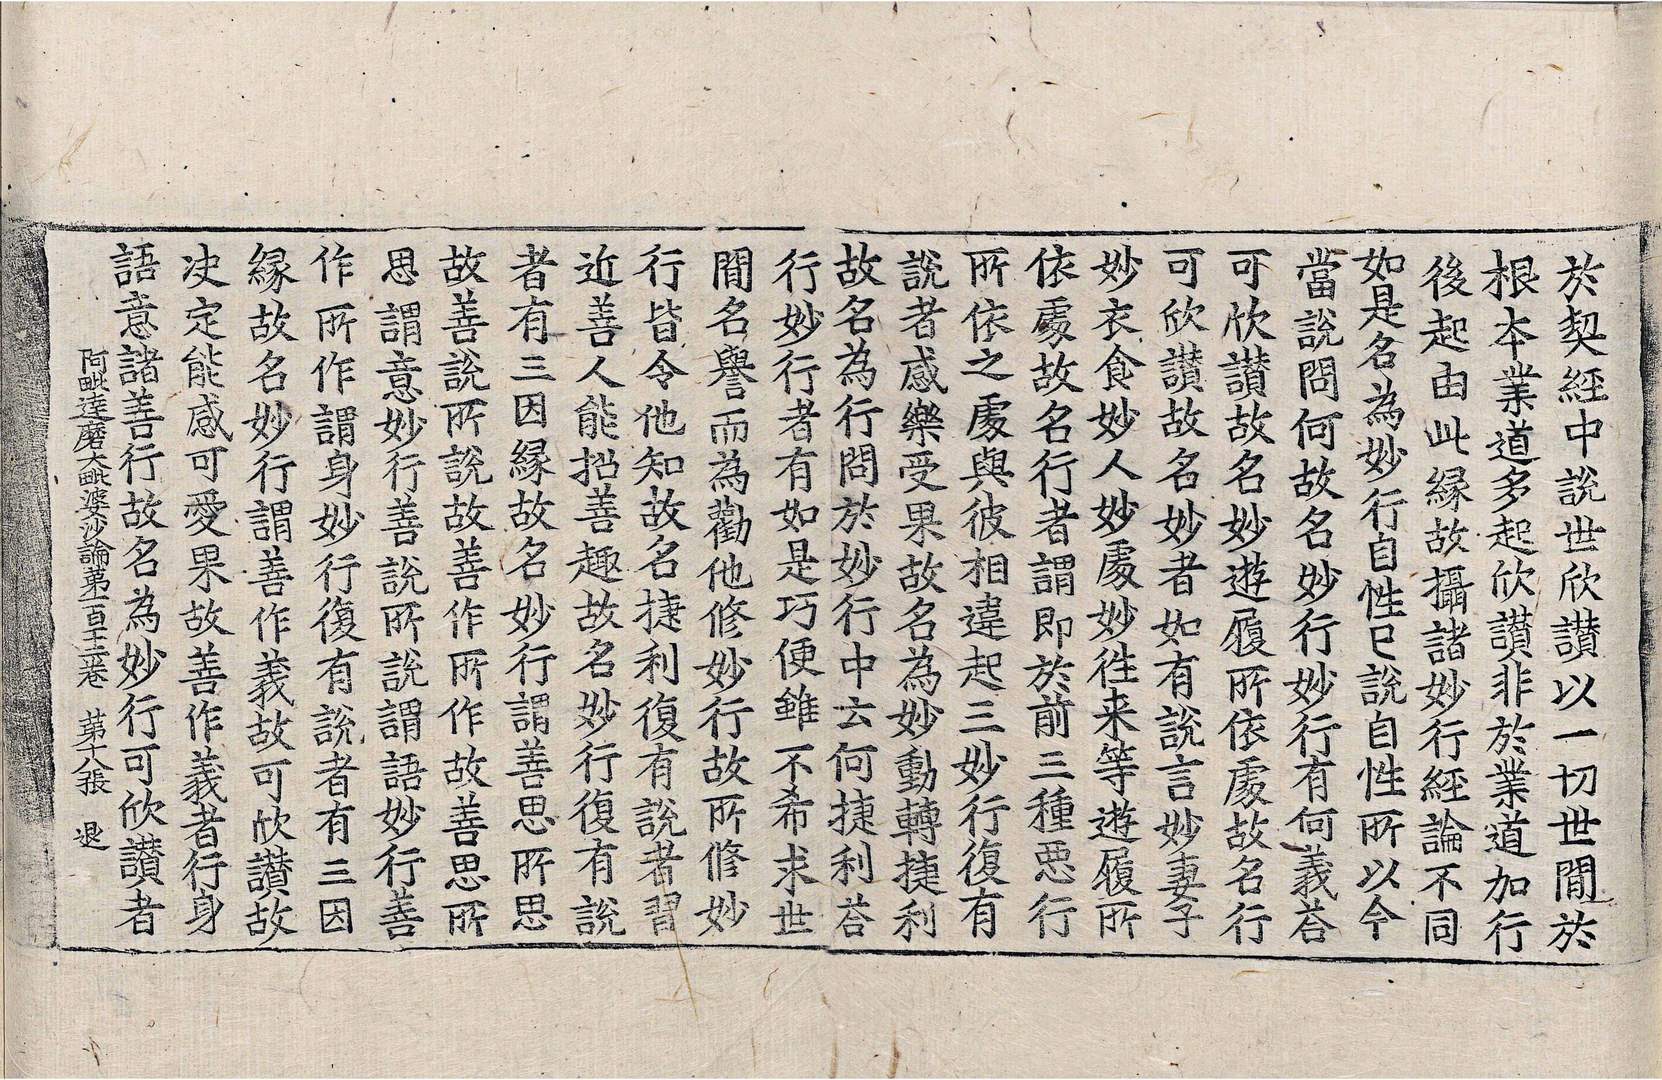 於契經中說世欣讃以一切世閒於
根本業道多起欣讃非於業道加行
後起由此緣故攝諸妙行經論不同
如是名為妙行自性已說自性所以今
當說問何故名妙行妙行有何義荅
可欣讃故名妙遊履所依處故名行
可欣讃故名妙者如有說言妙妻子
妙衣食妙人妙處妙徃来等遊履所
依處故名行者謂即於前三種惡行
所依之處與彼相違起三妙行復有
說者感樂受果故名為妙動轉捷利
故名為行問於妙行中云何捷利荅
行妙行者有如是巧便雖不希求世
閒名譽而為勸他修妙行故所修妙
行皆令他知故名捷利復有說者習
近善人能招善趣故名妙行復有說
者有三因緣故名妙行謂善思所思
故善說所說故善作所作故善思所
思謂意妙行善說所說謂語妙行善
作所作謂身妙行復有說者有三因
緣故名妙行謂善作義故可欣讃故
决定能感可愛果故善作義者行身
語意諸善行故名為妙行可欣讃者
阿毗達磨大毗婆沙論第一百十二卷 第十八張 退